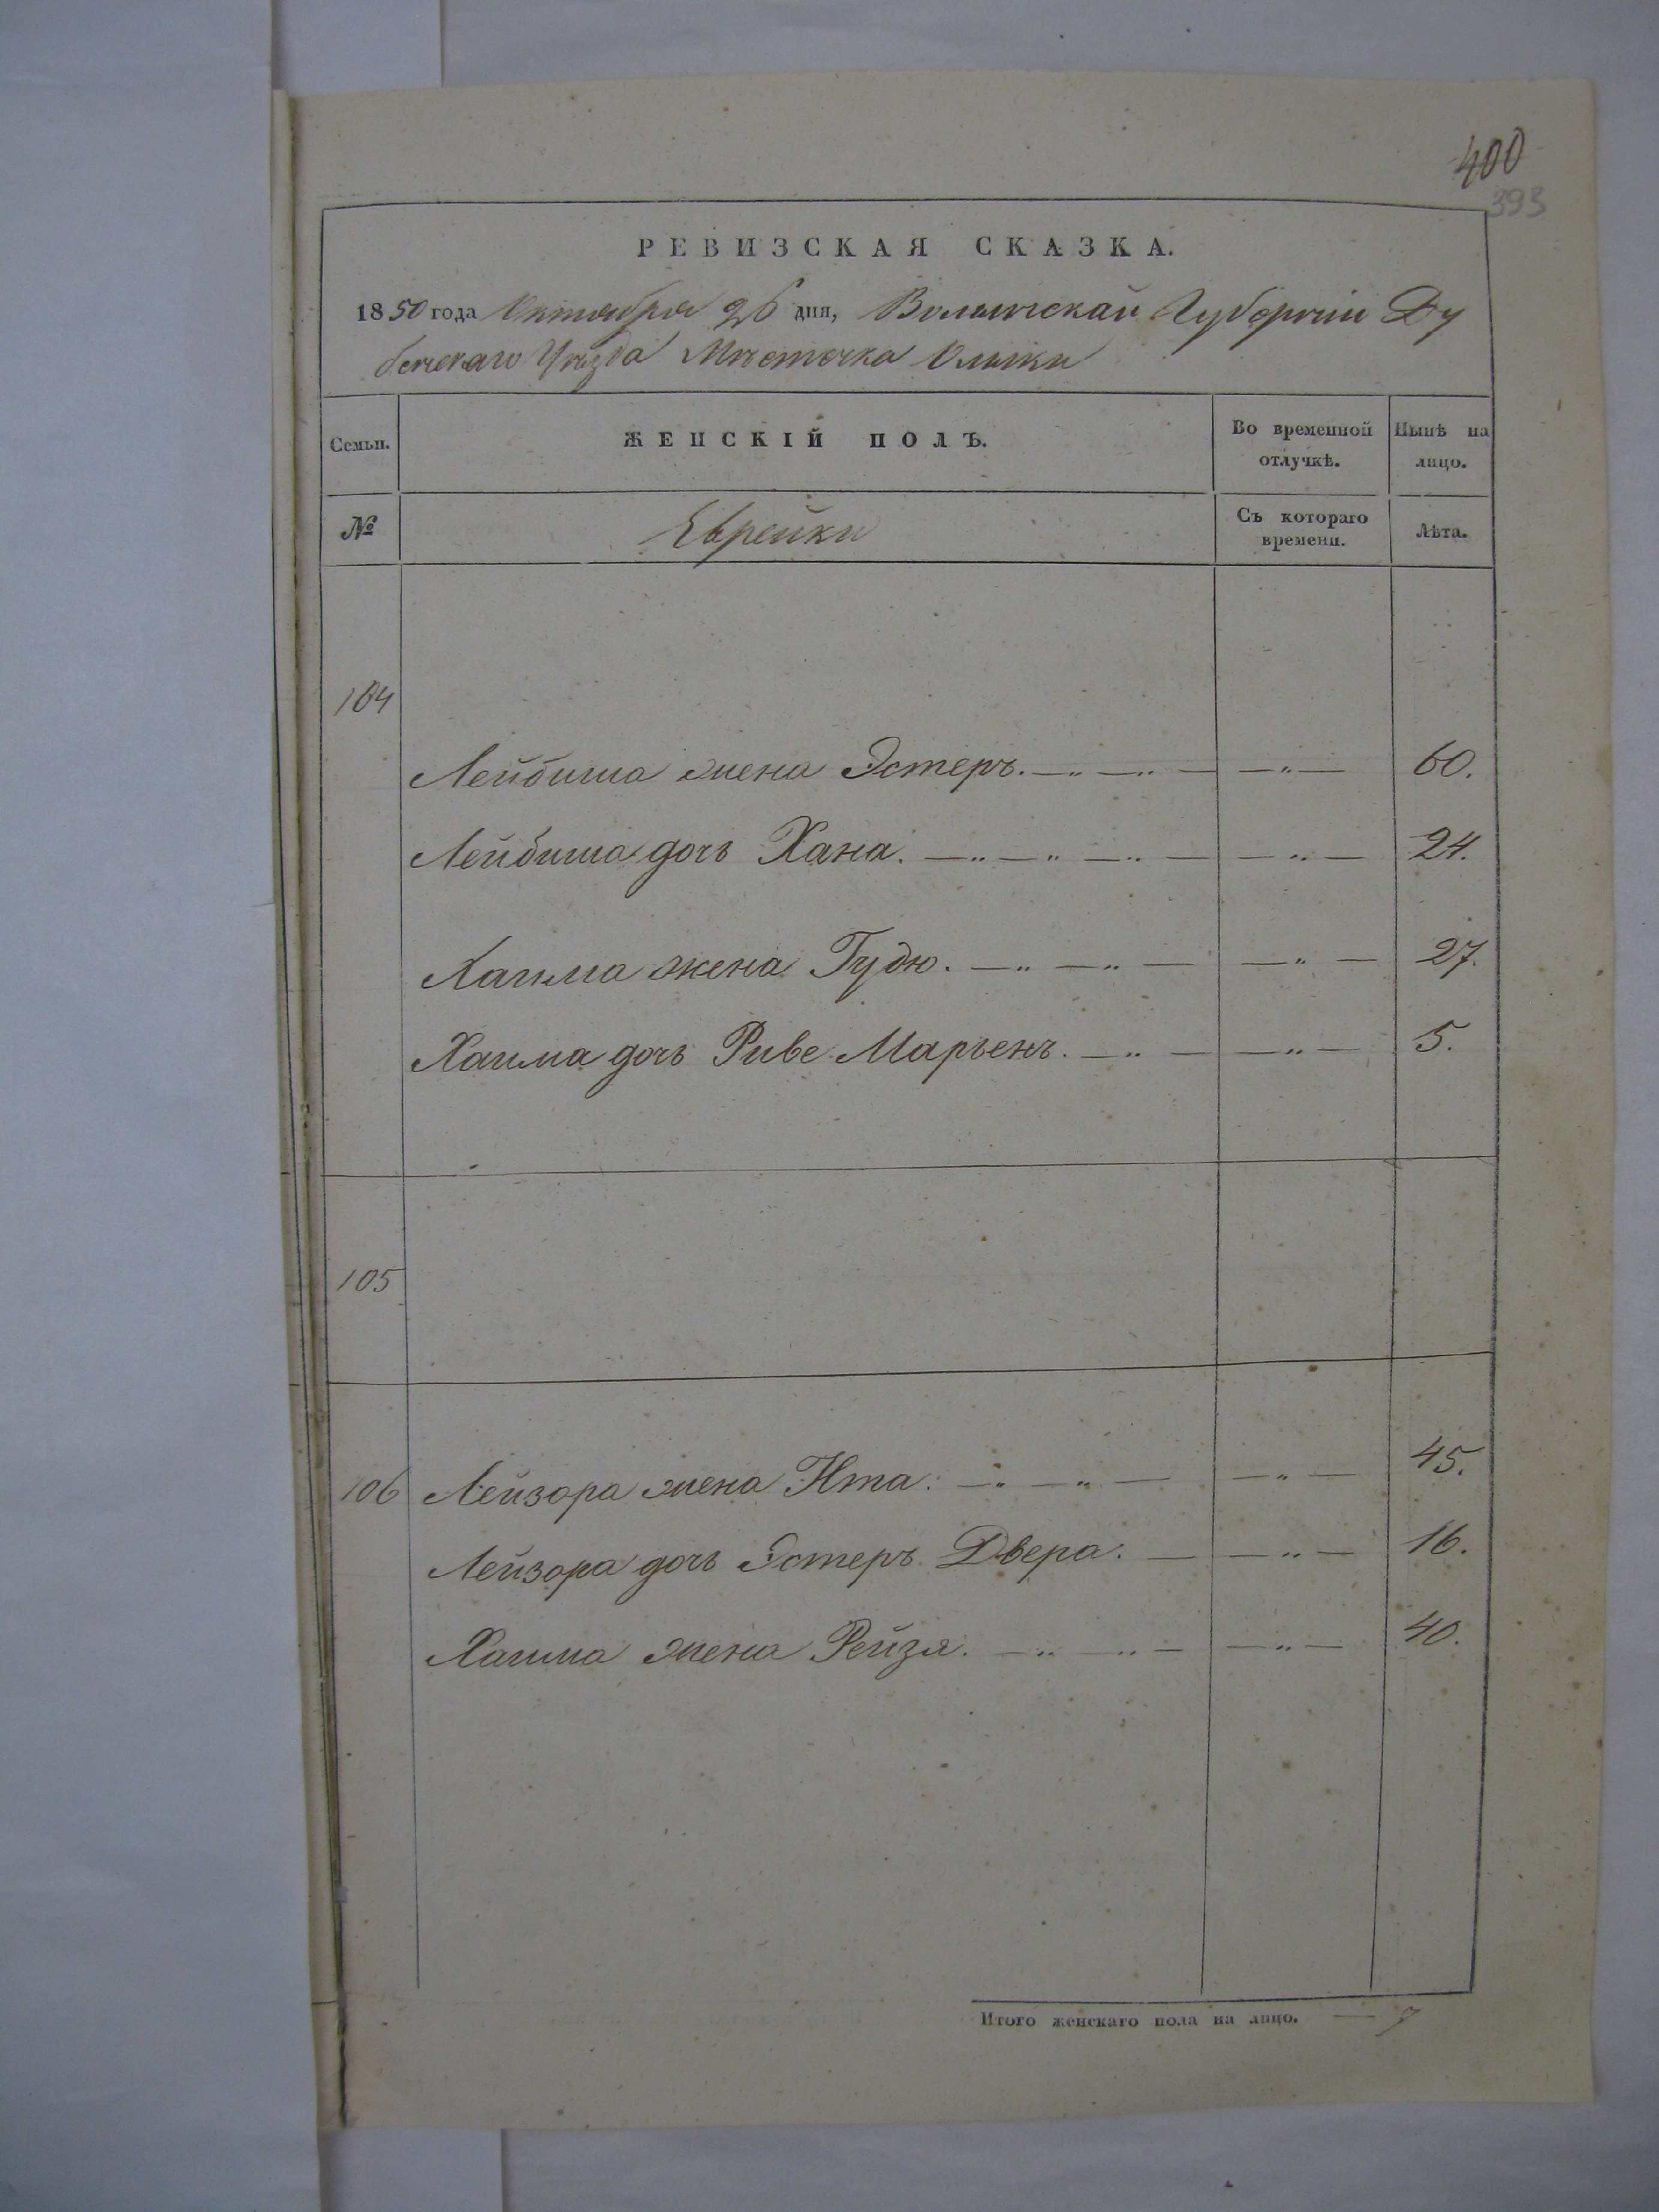 400
393
РЕВИЗСКАЯ СКАЗКА.
1850 года Октября 26 дня, Волынской Губерніи Ду
бенскаго Уѣзда Мѣстечка Олыки
Семьи. ЖЕНСКІЙ ПОЛЪ. Во временной отлучкѣ. Нынѣ на лицо.
№ Еврейки Съ котораго времени. Лѣта.
104
Лейбиша жена Эстеръ. — „ — „ — — „ — 60.
Лейбиша дочь Хана. — „ — „ — „ — — „ — 24.
Хаима жена Гудю. — „ — „ — — „ — 27.
Хаима дочь Риве Марьенъ. — „ — — „ — 5.
105
106 Лейзора жена Ита: — „ — „ — — „ — 45.
Лейзора дочь Эстеръ Двера. — — „ — 16.
Хаима жена Рейзя. — „ — „ — — „ — 40.
Итого женскаго пола на лицо. — 7